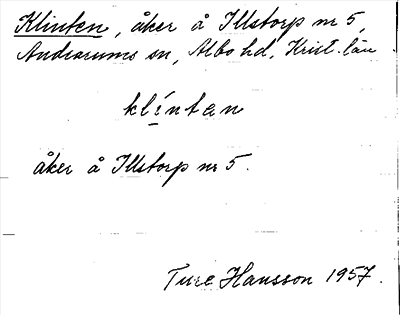 Klinten, åker å Illstorp nr 5,
Andrarums sn, Albo hd, Krist. län.
klínten
åker å Illstorp nr 5.
Ture Hansson 1957.